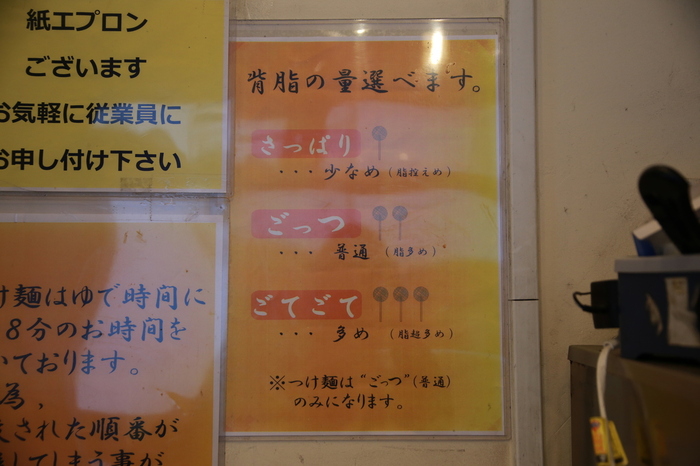 紙エプロン
ございます
お気軽に従業員に
お申し付け下さい
背脂の量選べます。
さっぱり
・・・少なめ(脂控えめ)
ごっつ
・・・普通(脂多め)
ごてごて
・・・多め(脂超多め)
※つけ麺は"ごっつ"(普通)
のみになります。
け麺はゆで時間に
8分のお時間を
いております。
為、
された順番が
してしまう事が